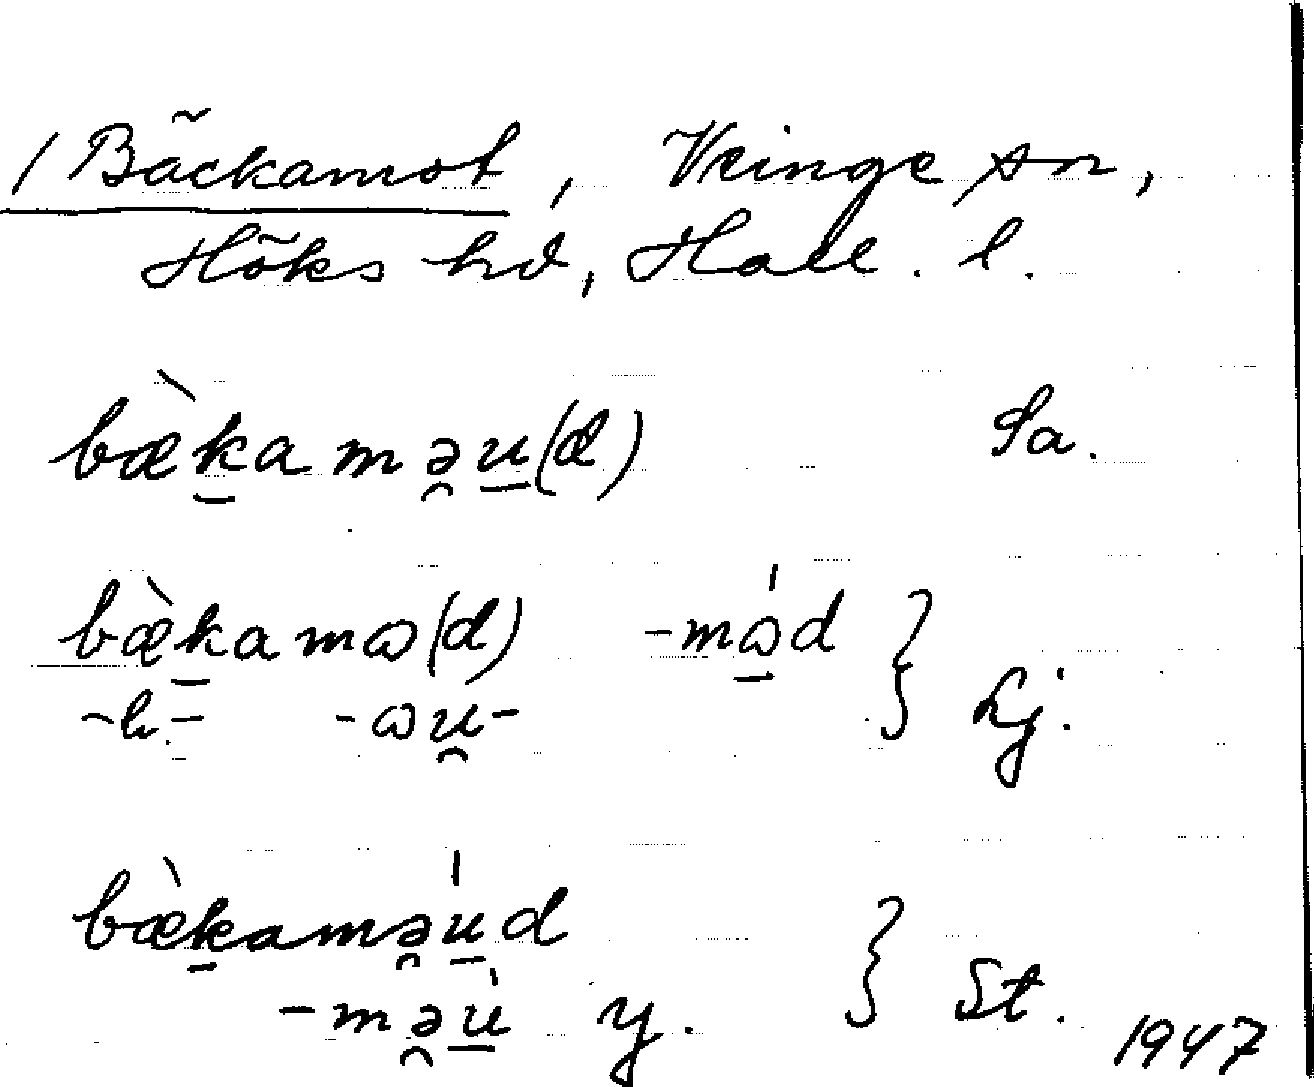 1 Bäckamot, Veinge sn,
Höks hd, Hall. l.
bæ̀k̠amə̯u̠(d) Sa.
bæ̀k̠amɷ(d) -mɷ̠́d } Lj.
-k.- -ɷu̯-
bæ̀k̠amə̯ú̠d } St.
-mə̯u̠̇ y.
1947